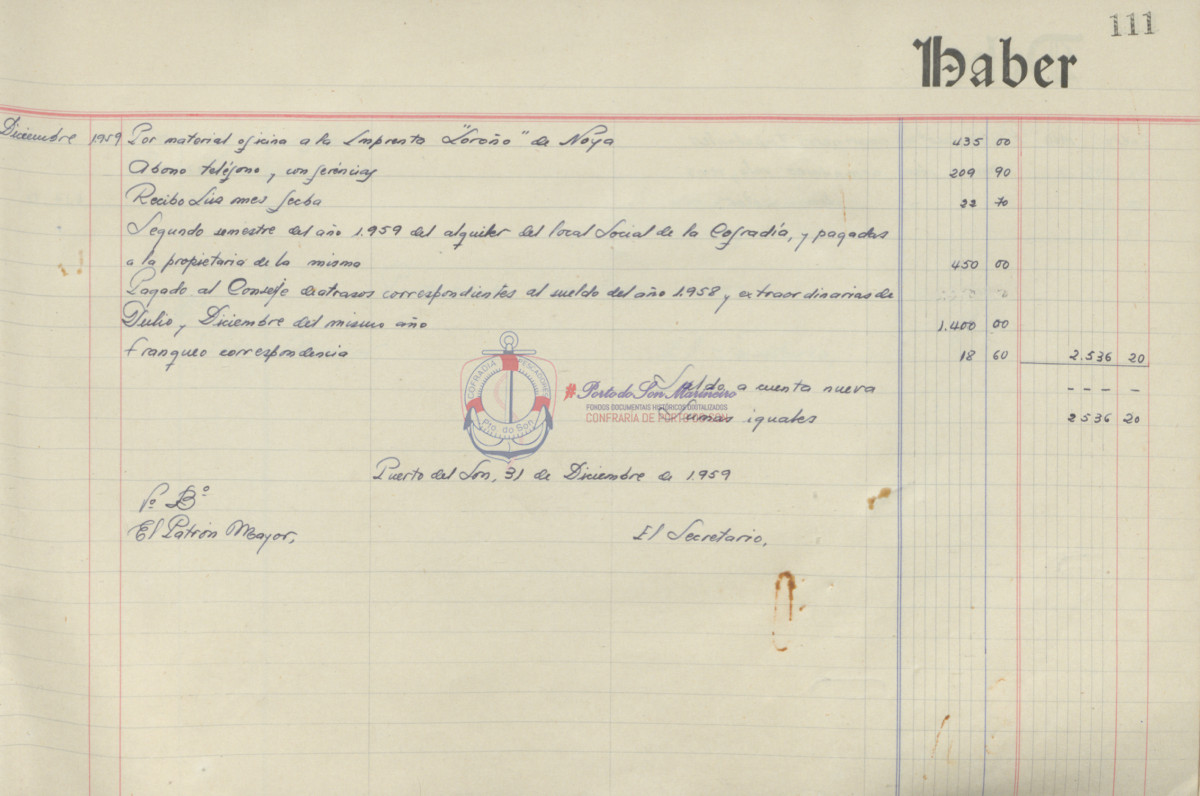 111
Haber
Diciembre 1959 Por material oficina a la Imprenta "Loroño" de Noya 435 00
Abono teléfono, y conferéncias 209 90
Recibo Luz mes fecha 22 70
Segundo semestre del año 1.959 del alquiler del local Social de la Cofradía, y pagadas
a la propietaria de la misma 450 00
Pagado al Conserje atrasos correspondientes al sueldo del año 1.958 y extraordinarias de
Julio, y Diciembre del mismo año 1.400 00
Franqueo correspondencia 18 60 2.536 20
Saldo a cuenta nueva - - - -
Sumas iguales 2536 20
COFRADIA PESCADORES
Pto. do Son
#Porto do Son Mariñeiro
FONDOS DOCUMENTAIS HISTÓRICOS DIXITALIZADOS
CONFRARÍA DE PORTO DO SON
Puerto del Son, 31 de Diciembre de 1.959
Vº Bº
El Patrón Mayor, El Secretario,